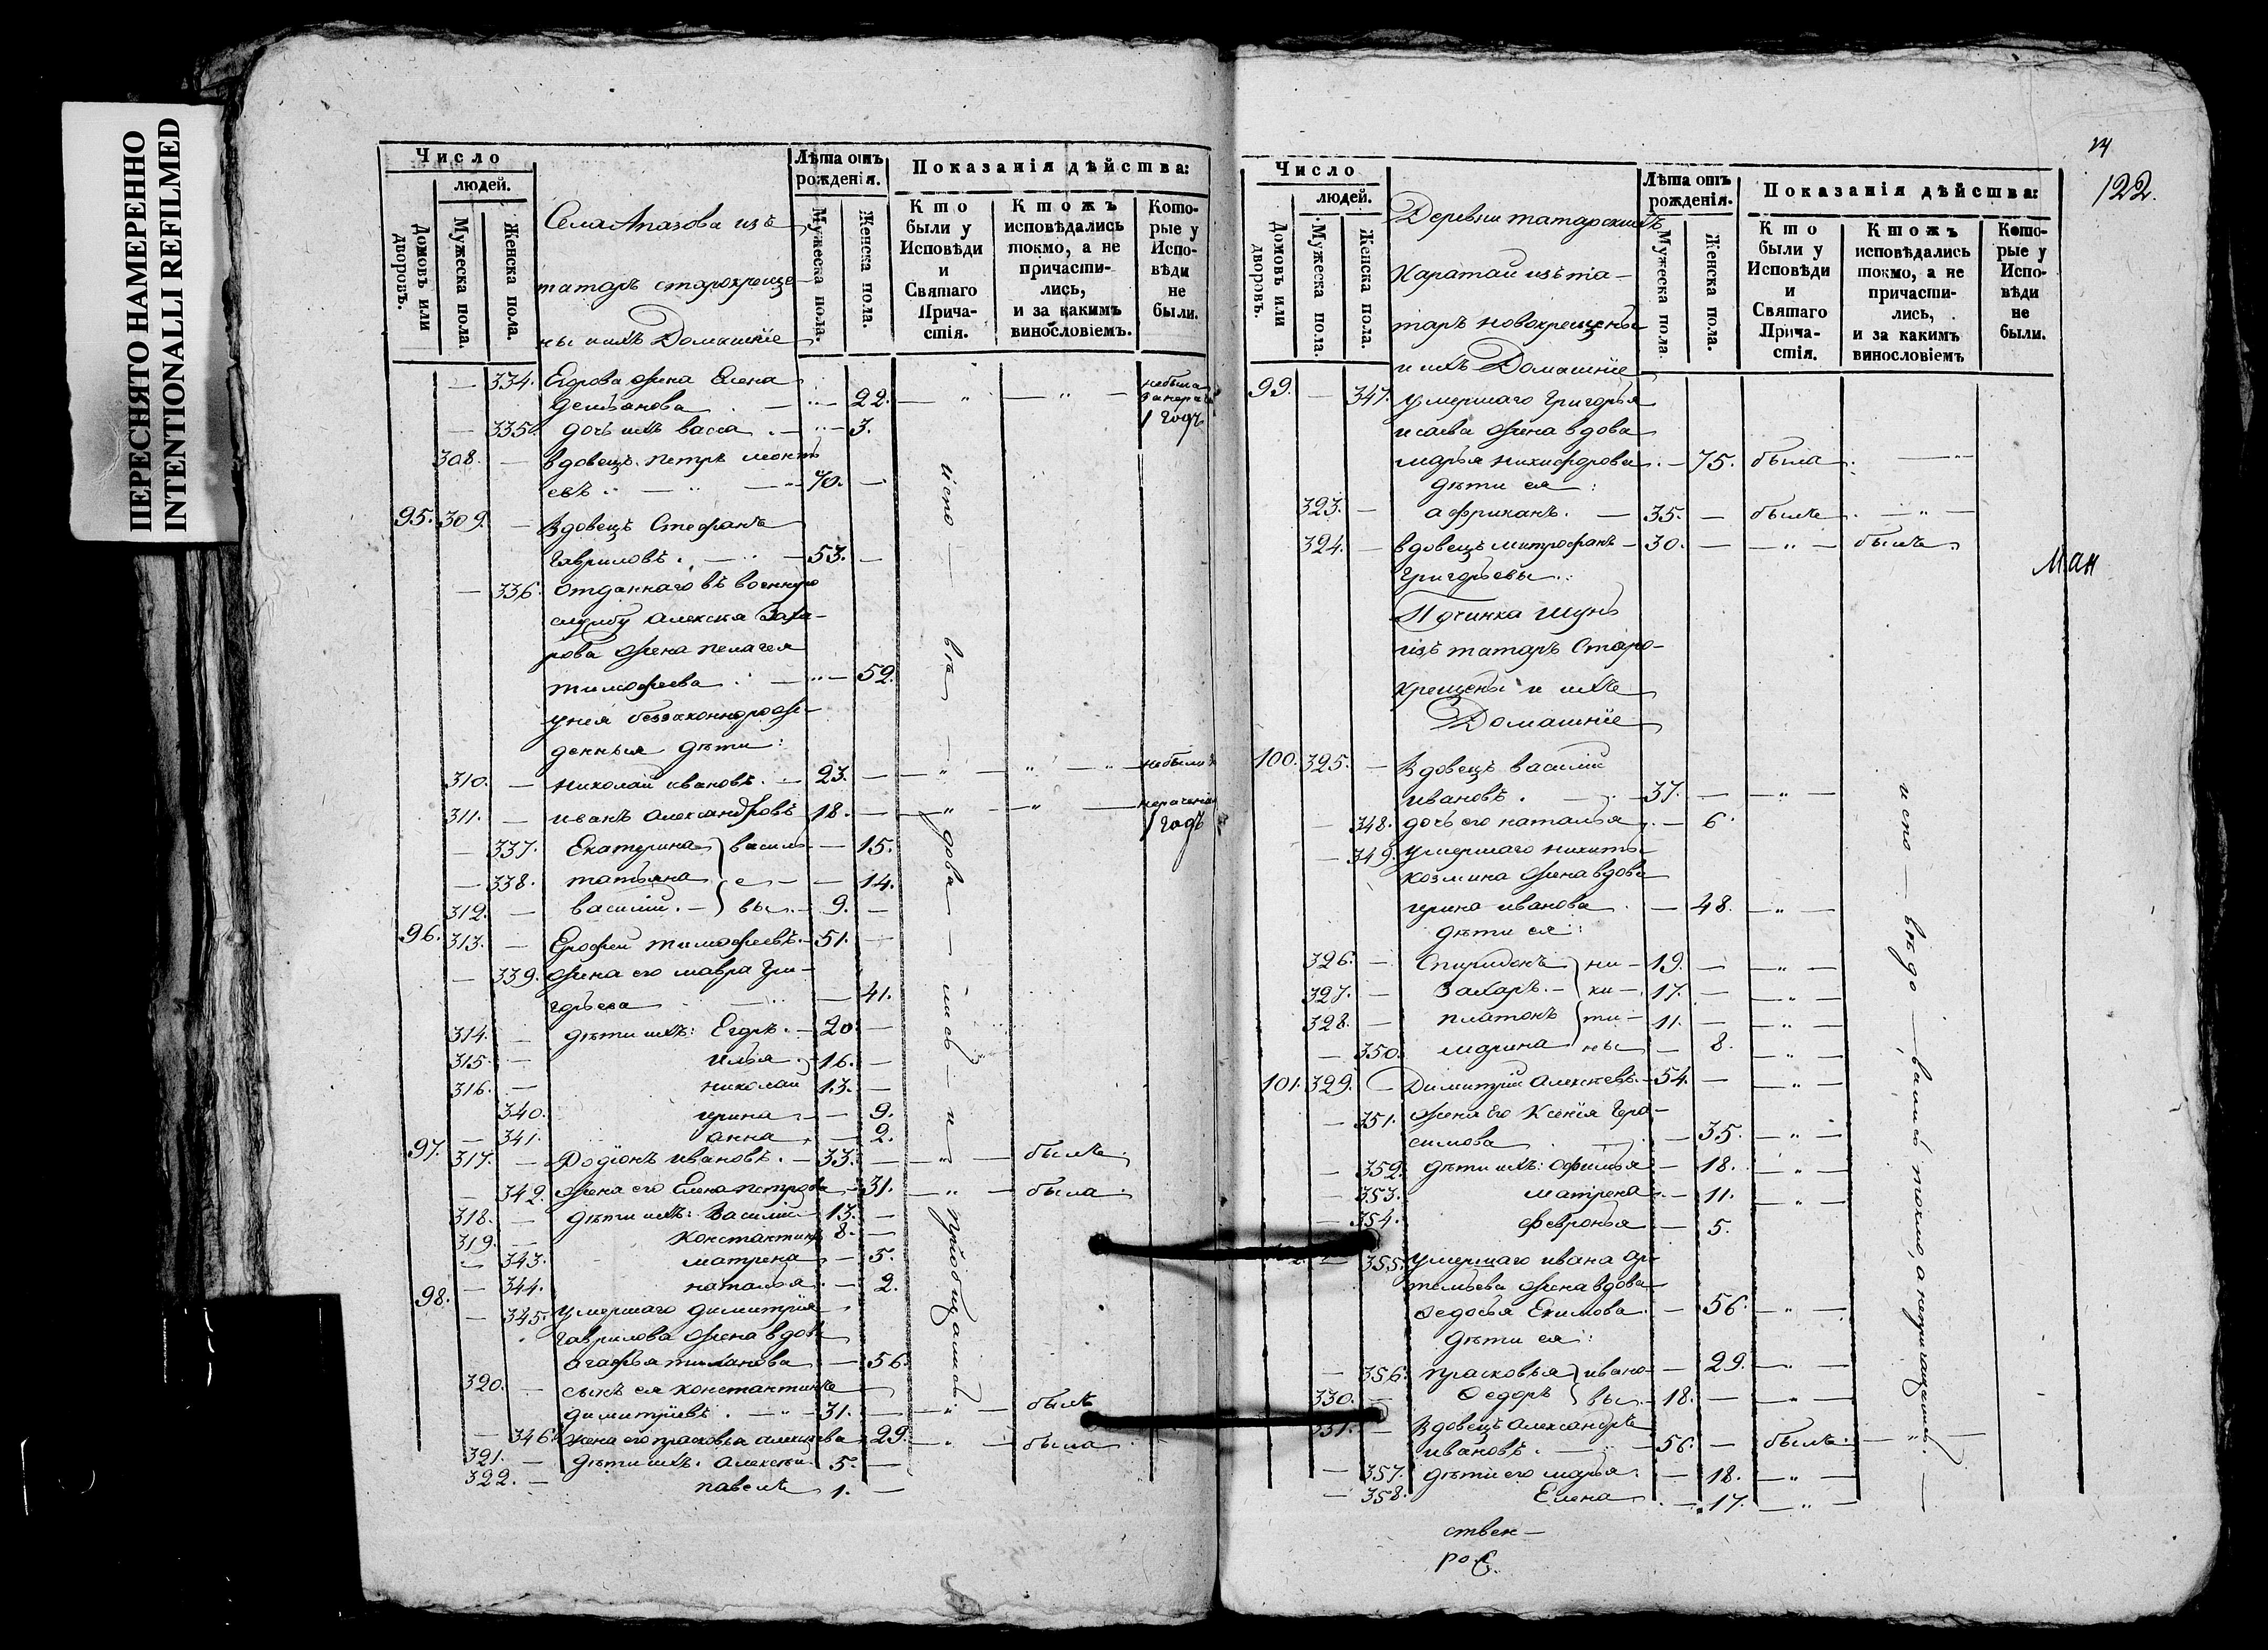 ПЕРЕСНЯТО НАМЕРЕННО
INTENTIONALLI REFILMED
Число
людей.
Домовъ или дворовъ.
Мужеска пола.
Женска пола.
Села Апазова изъ
татаръ старокреще-
ны и ихъ Домашніе
Лѣта отъ рожденія.
Мужеска пола.
Женска пола.
Показанія дѣйства:
Кто были у Исповѣди и Святаго Причастія.
Ктожъ исповѣдались токмо, а не причастились, и за какимъ винословіемъ.
Которые у Исповѣди не были.
— 334. Егорова жена Елена
— 22. — „ — „ —
1 годъ
— 335. дочь ихъ васса — 3.
308. — вдовецъ петръ
евъ — 70. —
95. 309. — Вдовецъ Стефанъ
Гавриловъ. — 53. —
— 336. отданнаго въ военную
службу алексѣя Заха-
рова жена пелагея
тимофеева — 52.
у нея беззаконнорож-
денныя дѣти:
310. — николай ивановъ. — 23. — „ — „ —
311. — иванъ александровъ 18. — „ — „ —
1 годъ
— 337. Екатерина } василь — 15.
— 338. татьяна } е — 14.
312. — василій. — } вы — 9. —
96. 313. — Ерофей тимофеевъ. — 51. —
— 339. жена его мавра Гри-
горьева — 41.
314. — дѣти ихъ: Егоръ. — 20. —
315. — илья — 16. —
316. — николай 13. —
340. ирина — 9.
— 341. анна — 2.
97. 317. — Родіонъ ивановъ. — 33. — „ — былъ.
— 342. жена его Елена петрова — 31. — „ — была.
318. — дѣти ихъ: василій — 13. —
319. — константинъ 8. —
— 343. матрена — 5.
— 344. наталья — 2.
98. — 345. умершаго димитрія
гаврилова жена вдова
агафья — 56.
320. — сынъ ея константинъ
димитріевъ. — 31. — „ — былъ
— 346. жена его прасковья алексѣева 29. — „ — была
321. — дѣти ихъ. алексѣй 5. —
322. — павелъ 1. —
испо — вѣ — дова — лись — и — пріобщались
24
122.
Число
людей.
Домовъ или дворовъ.
Мужеска пола.
Женска пола.
Деревни татарскихъ
Каратай изъ та-
таръ новокрещены
и ихъ Домашніе
Лѣта отъ рожденія.
Мужеска пола.
Женска пола.
Показанія дѣйства:
Кто были у Исповѣди и Святаго Причастія.
Ктожъ исповѣдались токмо, а не причастились, и за какимъ винословіемъ
Которые у Исповѣди не были.
99. — 347. умершаго Григорья
исаева жена вдова
марья никифорова — 75. была — „
дѣти ея:
323. — африканъ. — 35. — былъ — „ —
324. — вдовецъ митрофанъ — 30. — „ — былъ
Григорьевы.
Починка
изъ татаръ Старо-
крещены и ихъ
Домашніе
100. 325. — Вдовецъ василій
ивановъ. — 37. — „ —
— 348. дочь его наталья — 6.
— 349. умершаго никиты
козмина жена вдова
ирина иванова — 48. — „ —
дѣти ея:
326. — Спиридонъ } ни — 19. — „ —
327. — Захаръ. — } ки — 17. — „ —
328. — платонъ } ти — 11. — „ —
— 350. марина } ны — 8. — „ —
101. 329. — Димитрій алексѣевъ. — 54. — „ —
— 351. жена его Ксенія Гера-
симова — 35. — „ —
— 352. дѣти ихъ: офимья — 18. — „ —
— 353. матрена — 11. — „ —
— 354. февронья — 5.
— 355. умершаго ивана ар-
темьева жена вдова
федосья Екимова. — 56. — „ —
дѣти ея:
— 356. прасковья } ивано — 29. — „ —
330. — Федоръ } вы — 18. — „ —
331. — Вдовецъ александръ
ивановъ. — 56. — былъ. — „ —
— 357. дѣти его марья — 18. — „ —
— 358. Елена — 17. — „ —
испо — вѣ до — вались токмо, а не причащались. —
ман
ствен-
рос.